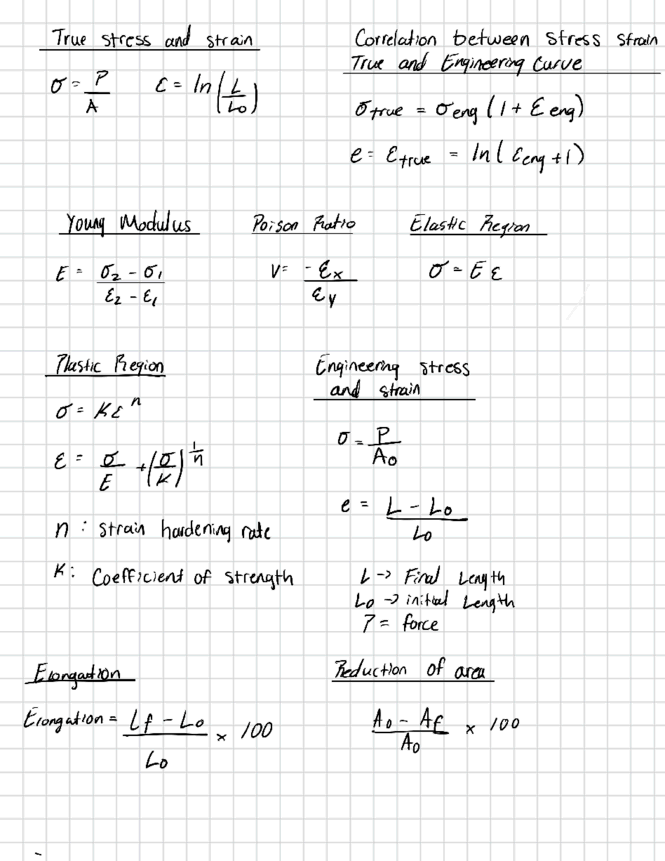 True stress and strain
σ = P/A    ε = ln(L/Lo)
Correlation between stress strain
True and Engineering Curve
σtrue = σeng (1 + εeng)
e = εtrue = ln(εeng + 1)
Young Modulus
E = (σ2 - σ1)/(ε2 - ε1)
Poison Ratio
V = -εx/εy
Elastic Region
σ = E ε
Plastic Region
σ = Kε^n
ε = σ/E + (σ/K)^(1/n)
n : strain hardening rate
K : Coefficient of strength
Engineering stress
and strain
σ = P/Ao
e = (L - Lo)/Lo
L -> Final Length
Lo -> initial Length
P = force
Elongation
Elongation = (Lf - Lo)/Lo × 100
Reduction of area
(Ao - Af)/Ao × 100